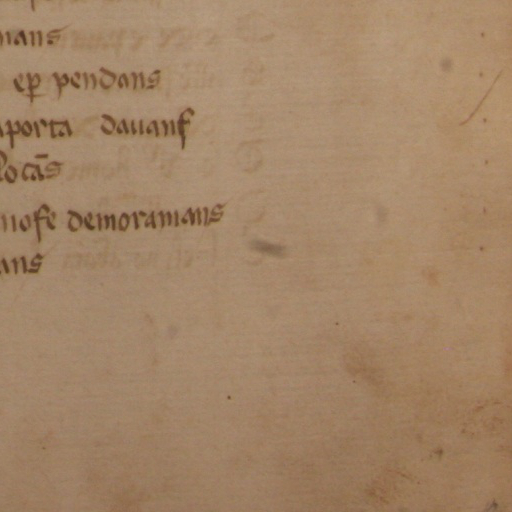 mans
ep̲ pendans
aporta dauanſ
locãs
noſe demoramans
ans